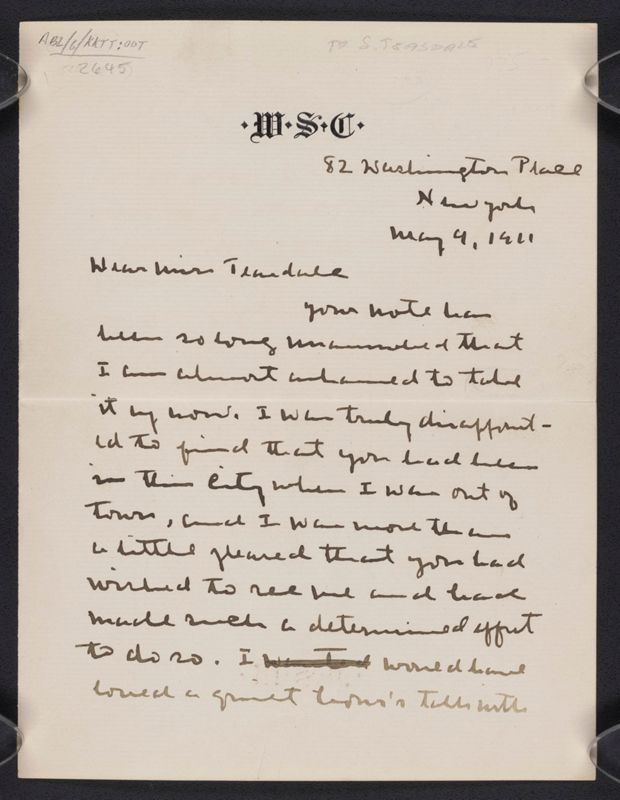 TO S. TEASDALE
2645
·W·S·C·
82 Washington Place
New York
May 9, 1911
Dear Miss Teasdale
your note has
been so long unanswered that
I am almost ashamed to take
it up now. I was truly disappoint-
ed to find that you had been
in this City when I was out of
town, and I was more than
a little pleased that you had
wished to see me and had
made such a determined effort
to do so. I wanted would have
loved a quiet hour's talk with